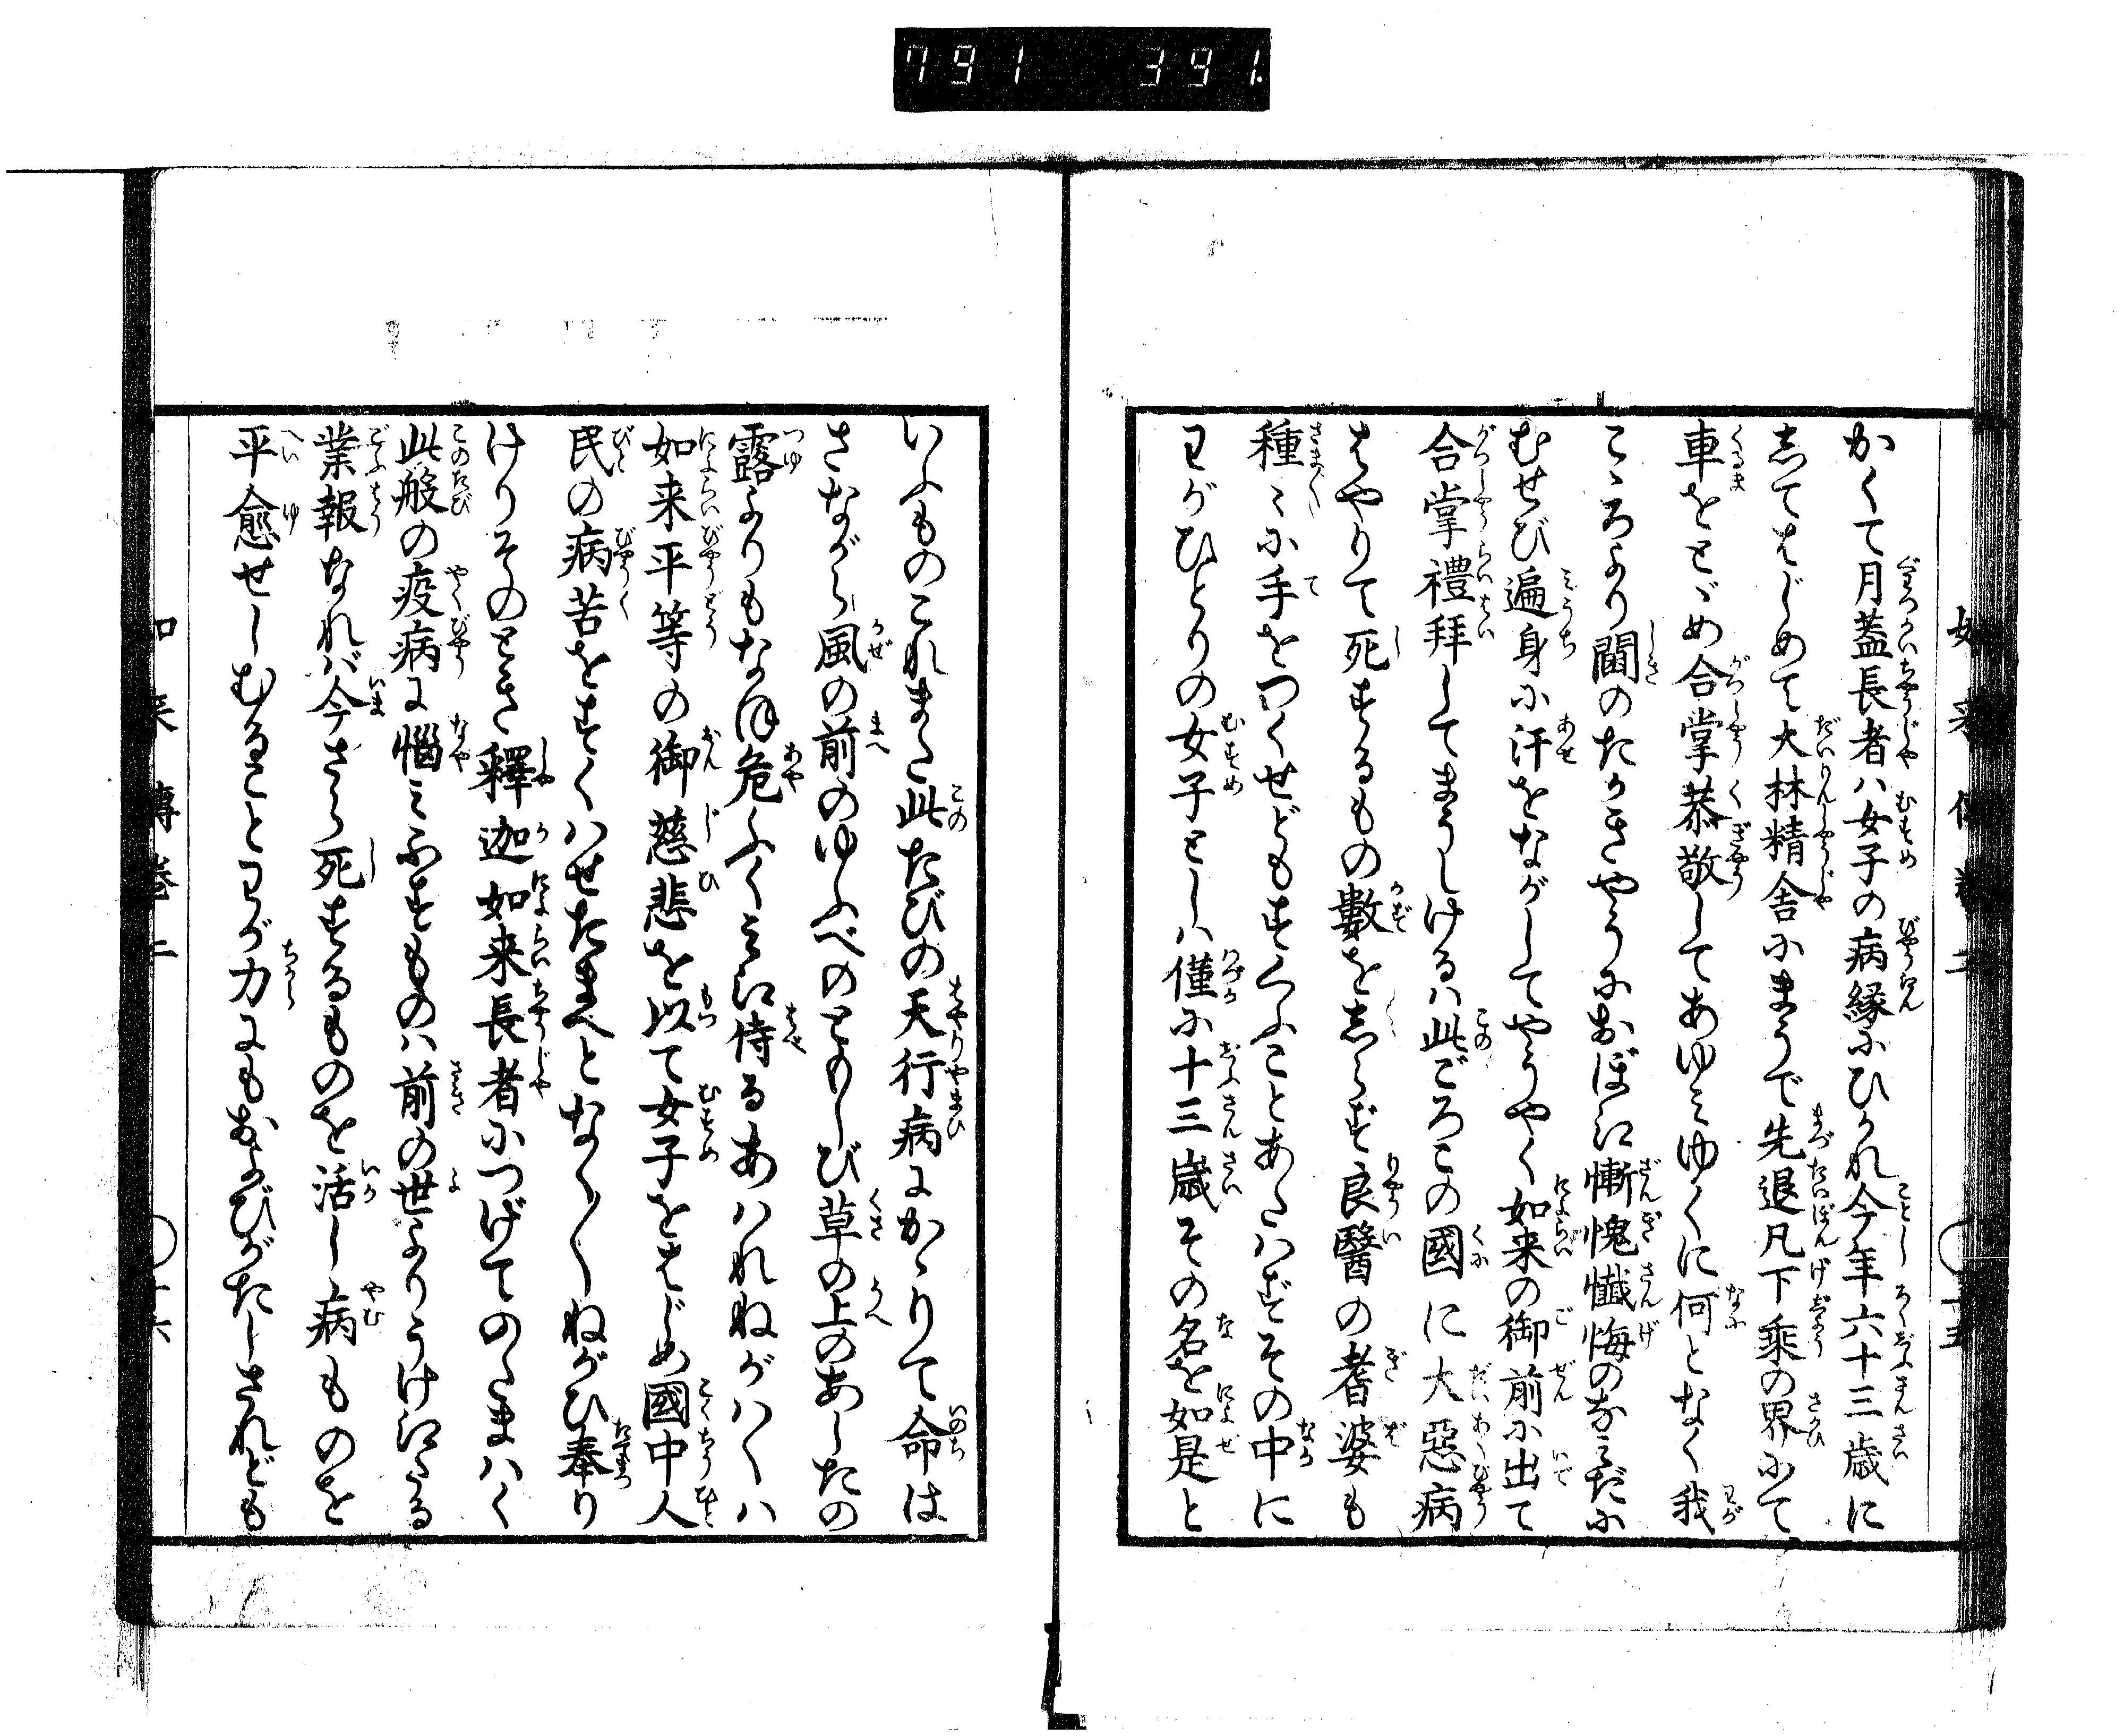 791 391
かくて月蓋長者ハ女子の病縁にひかれ今年六十三歳に
してはじめて大林精舎にまうで先退凡下乗の界にて
車をとゞめ合掌恭敬してあゆミゆくに何となく我
こゝろより閫のたかきやうにおぼえ慚愧懺悔のなミだに
むせび遍身に汗をながしてやうやく如来の御前に出て
合掌禮拜してまうしけるハ此ごろこの國に大惡病
はやりて死するもの數をしらず良醫の耆婆も
種〻に手をつくせどもすくふことあたハずその中に
わがひとりの女子としハ僅に十三歳その名を如是と
いふものこれまた此たびの天行病にかゝりて命は
さながら風の前のゆふべのともしび草の上のあしたの
露よりもなほ危ふくミえ侍るあハれねがハくハ
如来平等の御慈悲を以て女子をはじめ國中人
民の病苦をすくハせたまへとなく〳〵ねがひ奉り
けりそのとき釋迦如来長者につげてのたまハく
此般の疫病に惱ミふすものハ前の世よりうけえたる
業報なれバ今さら死するものを活し病ものを
平愈せしむることわが力にもおよびがたしされども
如来傳巻二